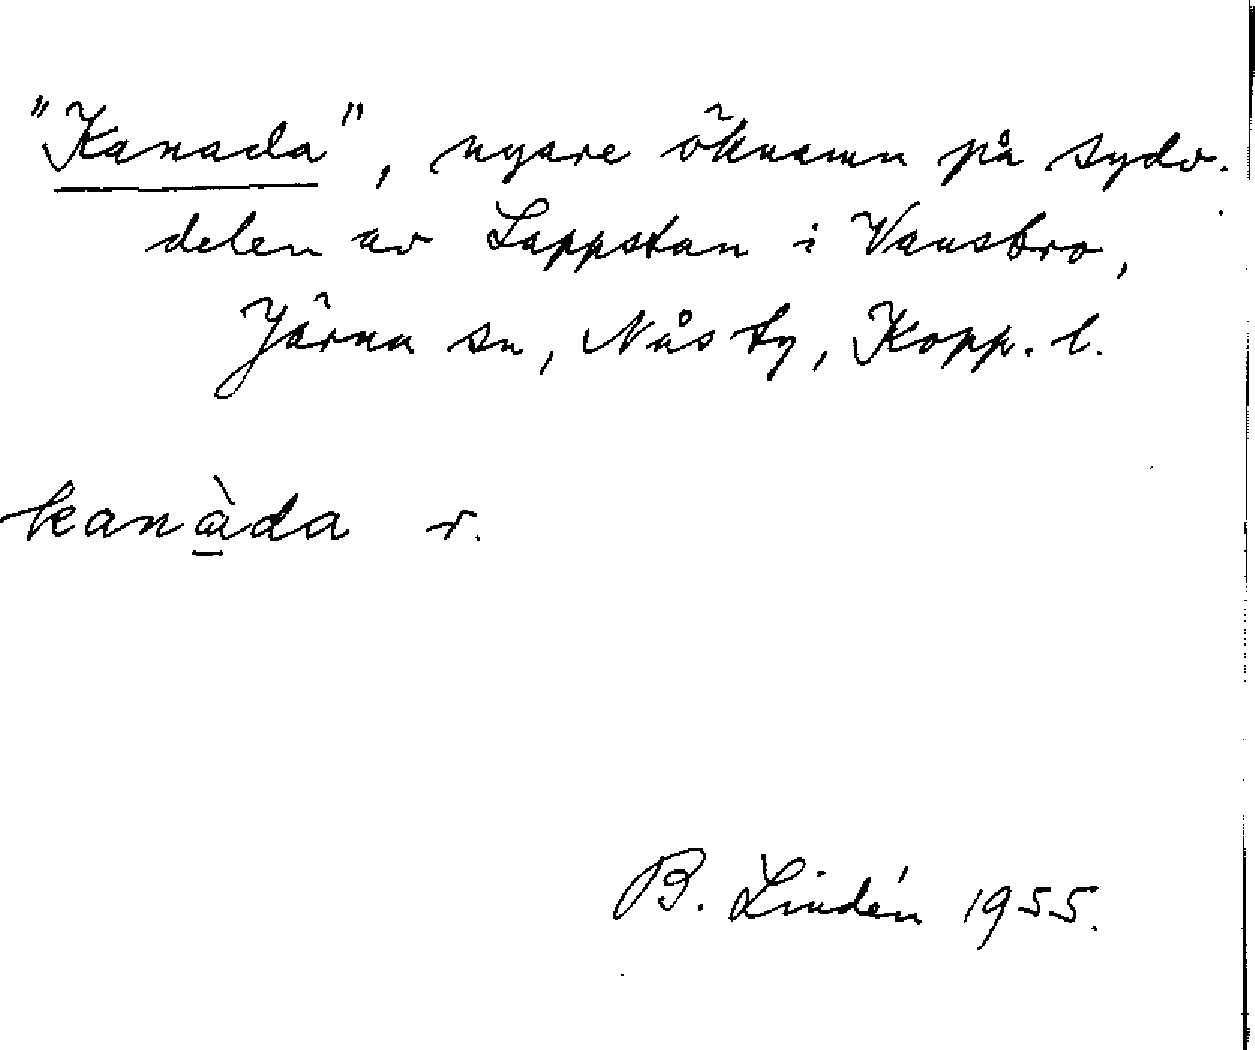 "Kanada", nyare öknamn på sydv.
delen av Lappstan i Vansbro,
Järna sn, Nås tg, Kopp. l.
kanàda r.
B. Lindén 1955.